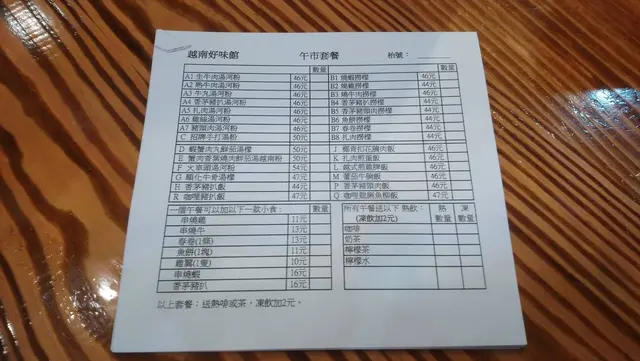 越南好味館 午市套餐 枱號：
數量 數量
A1 生牛肉湯河粉 46元 B1 燒蝦撈檬 46元
A2 熟牛肉湯河粉 46元 B2 燒雞撈檬 44元
A3 牛丸湯河粉 46元 B3 燒牛肉撈檬 46元
A4 香茅豬扒湯河粉 46元 B4 香茅豬扒撈檬 44元
A5 扎肉湯河粉 46元 B5 扎肉撈檬 44元
A6 雞絲湯河粉 46元 B6 魚餅撈檬 44元
A7 豬頭肉湯河粉 46元 B7 春卷撈檬 44元
C 招牌手打湯粉 50元 B8 扎肉撈檬 44元
D 蝦蟹肉丸鮮茄湯檬 50元 J 椰青扣花腩肉飯 46元
E 蟹肉香葉燒肉鮮茄湯越南粉 50元 K 扎肉煎蛋飯 46元
F 火車頭湯河粉 54元 L 鹹式煎雞脾飯 46元
G 順化牛骨湯檬 47元 M 蕃茄牛腩飯 46元
H 香茅豬扒飯 44元 P 香茅豬頭肉飯 46元
R 咖哩豬扒飯 47元 Q 咖哩龍脷魚柳飯 47元
一個午餐可以加以下一款小食： 數量
串燒雞 11元
串燒牛 13元
春卷(1條) 13元
魚餅(1塊) 11元
雞翼(1隻) 10元
串燒蝦 16元
香茅豬扒 16元
所有午餐送以下 熱飲： 熱 凍
(凍飲加2元) 數量 數量
咖啡
奶茶
檸檬茶
檸檬水
以上套餐：送熱啡或茶，凍飲加2元。